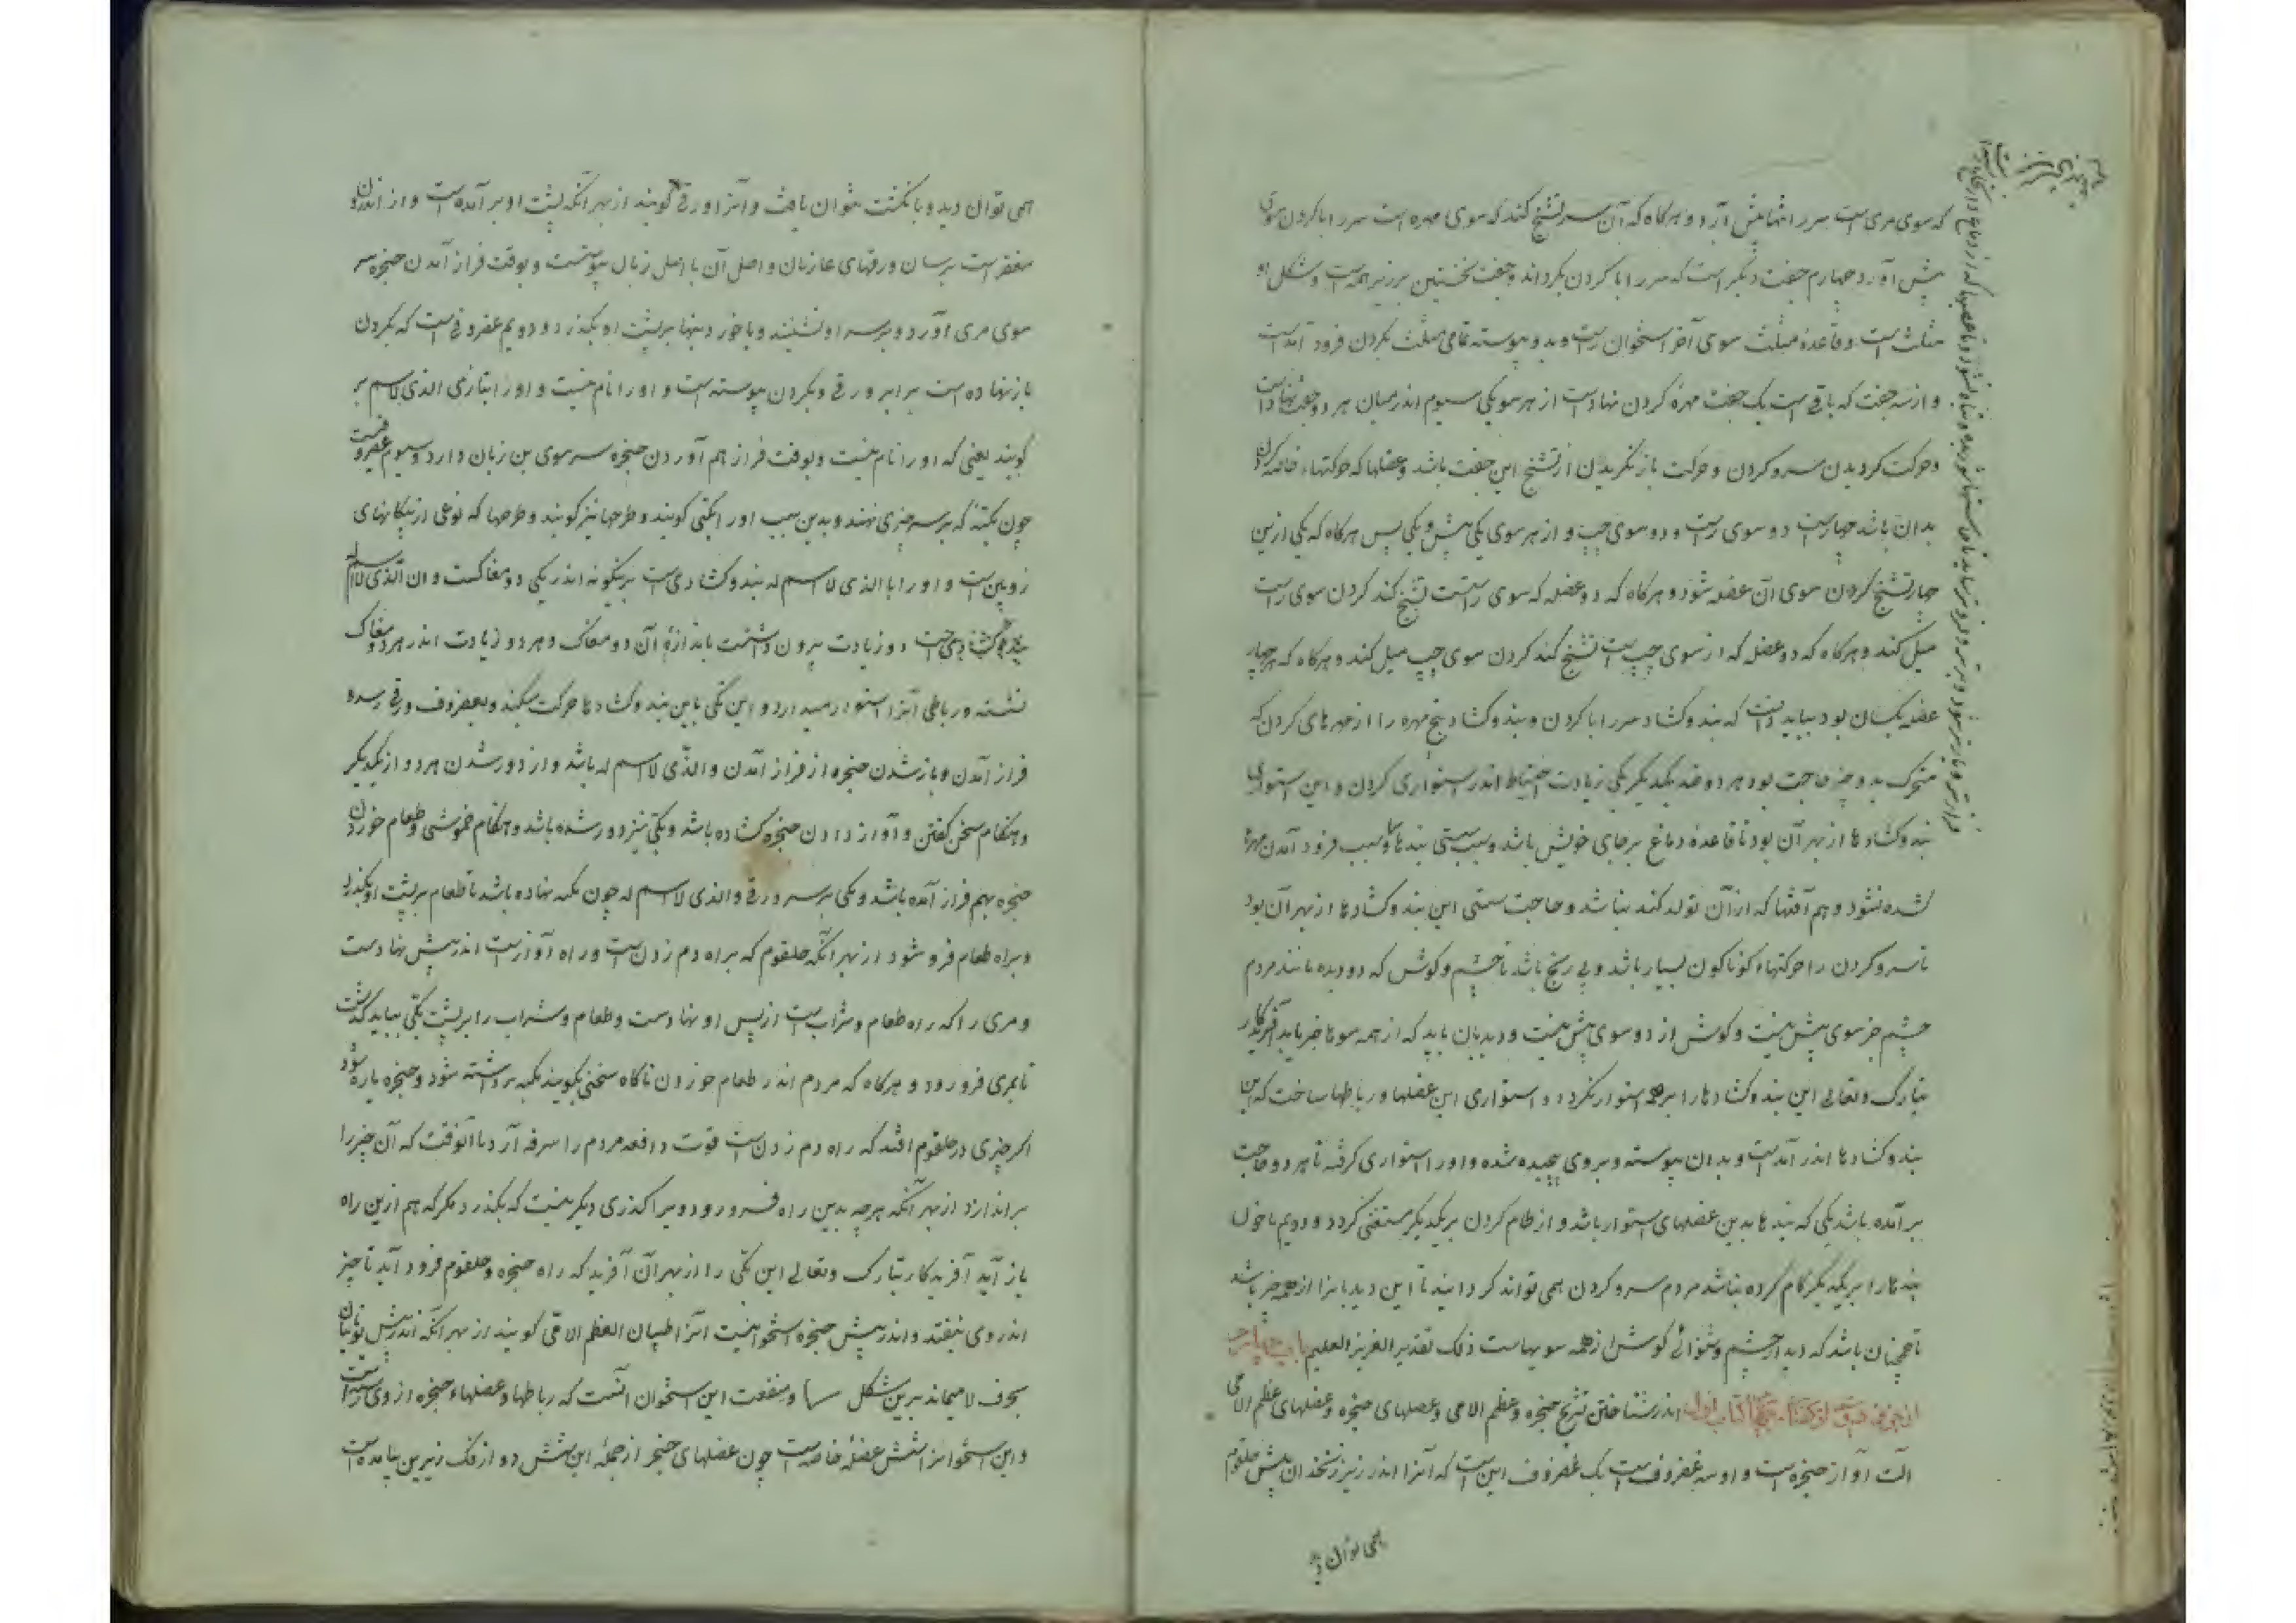 که سوی مری است سر را تنها پیش آرد و هرگاه که آن سر تشنج کند که سوی مهره است سر را با کردن سوی
پیش آورد چهارم جفت دیگر است که سر را با کردن بگرداند و جفت نخستین برزبر همه است و شکل او
مثلث است و قاعده مثلث سوی آخر استخوان است و بدو پیوسته تمامی مثلث بکردن فرود آمده است
و از سه جفت که باقی است یک جفت مهره کردن نهادست از هر سو یکی سیوم اندر میان هر دو جفت نهاده است
و حرکت کردیدن سر و کردن و حرکت باز نکریدن از تشنج این جفت باشد و عضلها که حرکتهاء خاصه کردن
بدان باشد چهارست دو سوی راست و دو سوی چپ و از هر سوی یکی پیش و یکی پس هرگاه که یکی ازین
چهار تشنج کردن سوی آن عضله شود و هرگاه که دو عضله که سوی راستست تشنج کند کردن سوی راست
میل کند و هرگاه که دو عضله که از سوی چپ است تشنج کند کردن سوی چپ میل کند و هرگاه که هر چهار
عضله یکسان بود بباید دانست که بند و کشاد سر را با کردن و بند و کشاد پنج مهره را از مهرهای کردن که
متحرک بدو چیز حاجت بود هر دو ضد یکدیکر یکی زیادت احتیاط اندر استواری کردن و این استواری
بند و کشادها از بهر آن بود تا قاعده دماغ بر جای خویش باشد و بسبب سستی بندها و سبب فرود آمدن مهره
شده نشود و هم آفتها که از آن تولد کند نباشد و حاجت سستی این بند و کشادها از بهر آن بود
تا سر و کردن را حرکتهاء کوناکون بسیار باشد و بی رنج باشد تا چشم و کوش که دو دیده مانند مردم
چشم جز سوی پیش نیست و کوش از دو سوی پیش نیست و دیدبان باید که از همه سوها خبر یابد آفریدکار
تبارک و تعالی این بند و کشادها را بر همه استوار نکرد و استواری این عضلها و رباطها ساخت که این
بند و کشادها اندر آمدست و بدان پیوسته و بر وی پیچیده شده و او را استواری کرفته تا هر دو حاجت
برآمده باشد یکی که بندها بدین عضلهای استوار باشد و از کام کردن بر یکدیکر مستغنی کردد و دویم تا چون
بندها را بر یکدیکر کام کرده نباشد مردم سر و کردن همی تواند کردانید تا این دیدبانرا از همه خبر باشد
تا همچنان باشد که دیدار چشم و شنوائی کوش از همه سویهاست ذلک تقدیر العزیز العلیم باب چهارم
از جزو اندر شناختن تشریح حنجره و عظم لامی و عضلهای حنجره و عضلهای عظم لامی
آلت آواز حنجره است و او سه غضروف است یک غضروف این است که آنرا اندر زیر زنخدان پیش حلقوم
همی توان دید
همی توان دید و بانکشت بتوان یافت و آنرا ورقی کویند از بهر آنکه پشت او برآمده است و از اندرون
مقعر است بر سان ورقهای و اصل آن با اصل زبان پیوستست و بوقت فراز آمدن حنجره سر
سوی مری آورد و بر سر او نشیند و با خوردنیها بر پشت او بکذرد و دویم غضروفی است که بکردن
باز نهاده است برابر ورقی و بکردن پیوسته است و او را نام نیست و او را بتازی الذی لا اسم له
کویند یعنی که او را نام نیست و بوقت فراز هم آوردن حنجره سر سوی بن زبان دارد و سیوم غضروفیست
چون مکبه که بر سر چیزی نهند و بدین سبب او را مکبی کویند و طرجها نیز کویند و طرجها که نوعی از پیکانهای
زوبین است و او را با الذی لا اسم له بند و کشادی است برینکونه اندر یکی دو مغاکست و آن الذی لا اسم له
بند و کشادی است دو زیادت بیرون داشتست باندازه آن دو مغاک و هر دو زیادت اندر هر دو مغاک
نشسته و رباطی آنرا استوار میدارد و این مکبی باین بند و کشادها حرکت میکند و بغضروف ورقی رسد
فراز آمدن و باز شدن حنجره از فراز آمدن والذی لا اسم له باشد و از دور شدن هر دو از یکدیکر
و هنکام سخن کفتن و آواز دادن حنجره کشاده باشد و مکبی نیز دور شده باشد و هنکام خموشی و طعام خوردن
حنجره بهم فراز آمده باشد و مکبی بر سر ورقی والذی لا اسم له چون مکبه نهاده باشد تا طعام بر پشت او بکذرد
و براه طعام فرو شود از بهر آنکه حلقوم که براه دم زدن است و راه آوازست اندر پیش نهادست
و مری را که راه طعام و شراب است از پس او نهادست و طعام و شراب را بر پشت مکبی بباید کذشت
تا بمری فرو رود و هرگاه که مردم اندر طعام خوردن ناکاه سخنی بکویند مکبه برداشته شود و حنجره باز شود
اکر چیزی در حلقوم افتد که راه دم زدن است قوت دافعه مردم را سرفه آرد تا آنوقت که آن چیز را
براندازد از بهر آنکه هرچه بدین راه فرو رود ویرا کذری دیکر نیست که بکذرد مکر که هم ازین راه
باز آید آفریدکار تبارک و تعالی این مکبی را از بهر آن آفرید که راه حنجره و حلقوم فرود آید تا چیز
اندر وی نیفتد و اندر پیش حنجره استخوانیست آنرا طبیبان العظم اللامی کویند از بهر آنکه اندر نبشتن یونانیان
بحرف لا میماند برین شکل و منفعت این استخوان آنست که رباطها و عضلهاء حنجره از وی رستست
و این استخوانرا شش عضله خاصه است چون عضلهای حنجره از جمله این شش دو از فک زیرین بیامده است